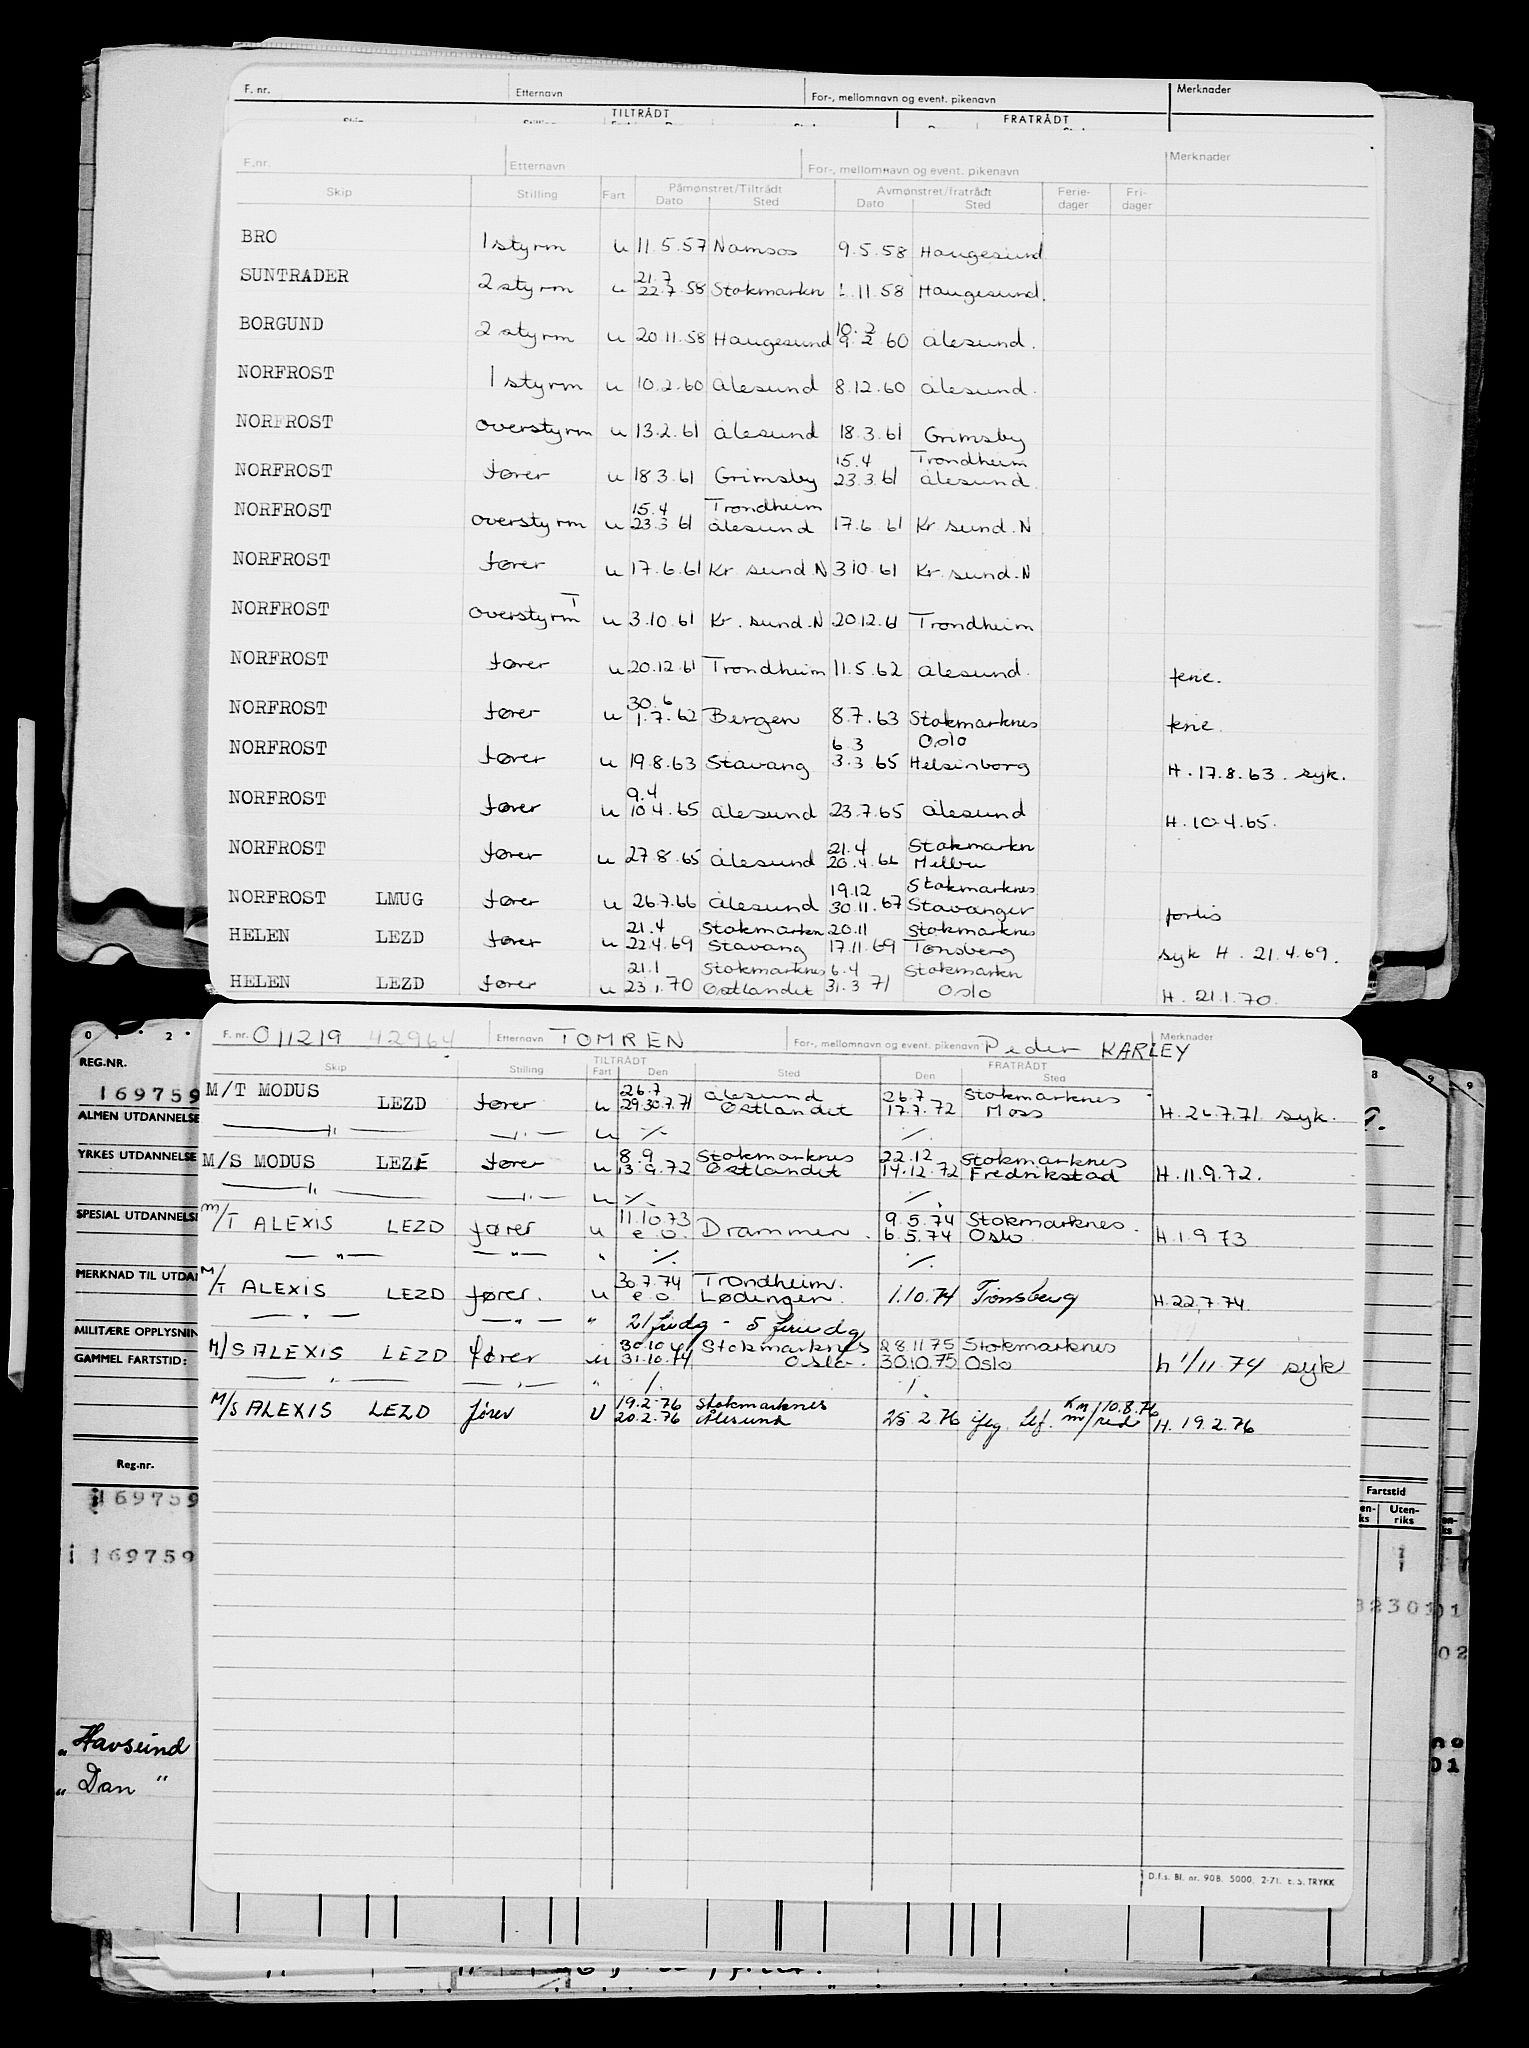 F. nr. Etternavn For-, mellomnavn og event. pikenavn Merknader
TILTRÅDT FRATRÅDT
F.nr. Etternavn For-, mellomnavn og event. pikenavn Merknader
Skip Stilling Fart Påmønstret/Tiltrådt Avmønstret/fratrådt Ferie- Fri-
Dato Sted Dato Sted dager dager
BRO 1 styrm u 11.5.57 Namsos 9.5.58 Haugesund
21.7
SUNTRADER 2 styrm u 22.7.58 Stokmarkn 11.58 Haugesund.
10.2
BORGUND 2 styrm u 20.11.58 Haugesund 9.2.60 Ålesund.
NORFROST 1 styrm u 10.2.60 Ålesund 8.12.60 Ålesund.
NORFROST overstyrm u 13.2.61 Ålesund 18.3.61 Grimsby
15.4 Trondheim
NORFROST fører u 18.3.61 Grimsby 23.3.61 Ålesund
15.4 Trondheim
NORFROST overstyrm u 23.3.61 Ålesund 17.6.61 Kr.sund.N
NORFROST fører u 17.6.61 Kr.sund.N 3.10.61 Kr.sund.N
T
NORFROST overstyrm u 3.10.61 Kr.sund.N 20.12.61 Trondheim
NORFROST fører u 20.12.61 Trondheim 11.5.62 Ålesund. ferie.
30.6
NORFROST fører u 1.7.62 Bergen 8.7.63 Stokmarknes ferie.
6.3 Oslo
NORFROST fører u 19.8.63 Stavang 3.3.65 Helsinborg H.17.8.63. syk.
9.4
NORFROST fører u 10.4.65 Ålesund 23.7.65 Ålesund H.10.4.65.
21.4 Stokmarkn
NORFROST fører u 27.8.65 Ålesund 20.4.66 Melbu
19.12 Stokmarknes
NORFROST LMUG fører u 26.7.66 Ålesund 30.11.67 Stavanger forlis
21.4 Stokmarkn 20.11 Stokmarknes
HELEN LEZD fører u 22.4.69 Stavang 17.11.69 Tønsberg syk H. 21.4.69.
21.1 Stokmarknes 6.4 Stokmarkn
HELEN LEZD fører u 23.1.70 Østlandet 31.3.71 Oslo H. 21.1.70.
F. nr. 011219 42964 Etternavn TOMREN For-, mellomnavn og event. pikenavn Peder KARLEY Merknader
TILTRÅDT FRATRÅDT
Skip Stilling Fart Den Sted Den Sted
26.7 Ålesund 26.7 Stokmarknes
M/T MODUS LEZD fører u 29.30.7.71 Østlandet 17.7.72 Moss H.26.7.71 syk.
—"— —"— u ./. ./.
8.9 Stokmarknes 22.12 Stokmarknes
M/S MODUS LEZE fører u 13.9.72 Østlandet 14.12.72 Fredrikstad H.11.9.72.
—"— —"— u ./. ./.
11.10.73 9.5.74 Stokmarknes.
M/T ALEXIS LEZD fører u e.o. Drammen. 6.5.74 Oslo H.1.9.73
—"— —"— " ./. ./.
30.7.74 Trondheim.
M/T ALEXIS LEZD fører. u e.o. Lødingen. 1.10.74 Tønsberg H.22.7.74.
—"— —"— " 21 fridg - 5 feriedg
30.10.74 Stokmarknes 28.11.75 Stokmarknes
M/S ALEXIS LEZD fører u 31.10.74 Oslo. 30.10.75 Oslo h 1/11.74 syk
—"— —"— " ./. ./.
19.2.76 Stokmarknes
M/S ALEXIS LEZD fører U 20.2.76 Ålesund 25.2.76 H. 19.2.76
D.f.s. Bl. nr. 908. 5000. 2-71. E.S. TRYKK
REG.NR.
169759
ALMEN UTDANNELSE
YRKES UTDANNELSE
SPESIAL UTDANNELSE
MERKNAD TIL UTDAN
MILITÆRE OPPLYSNIN
GAMMEL FARTSTID:
Reg.nr.
169759
i 169759
"Havsund
"Dan "
Fartstid
en- Uten-
ks riks